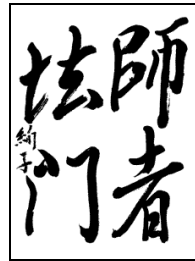 師者
門
絢子